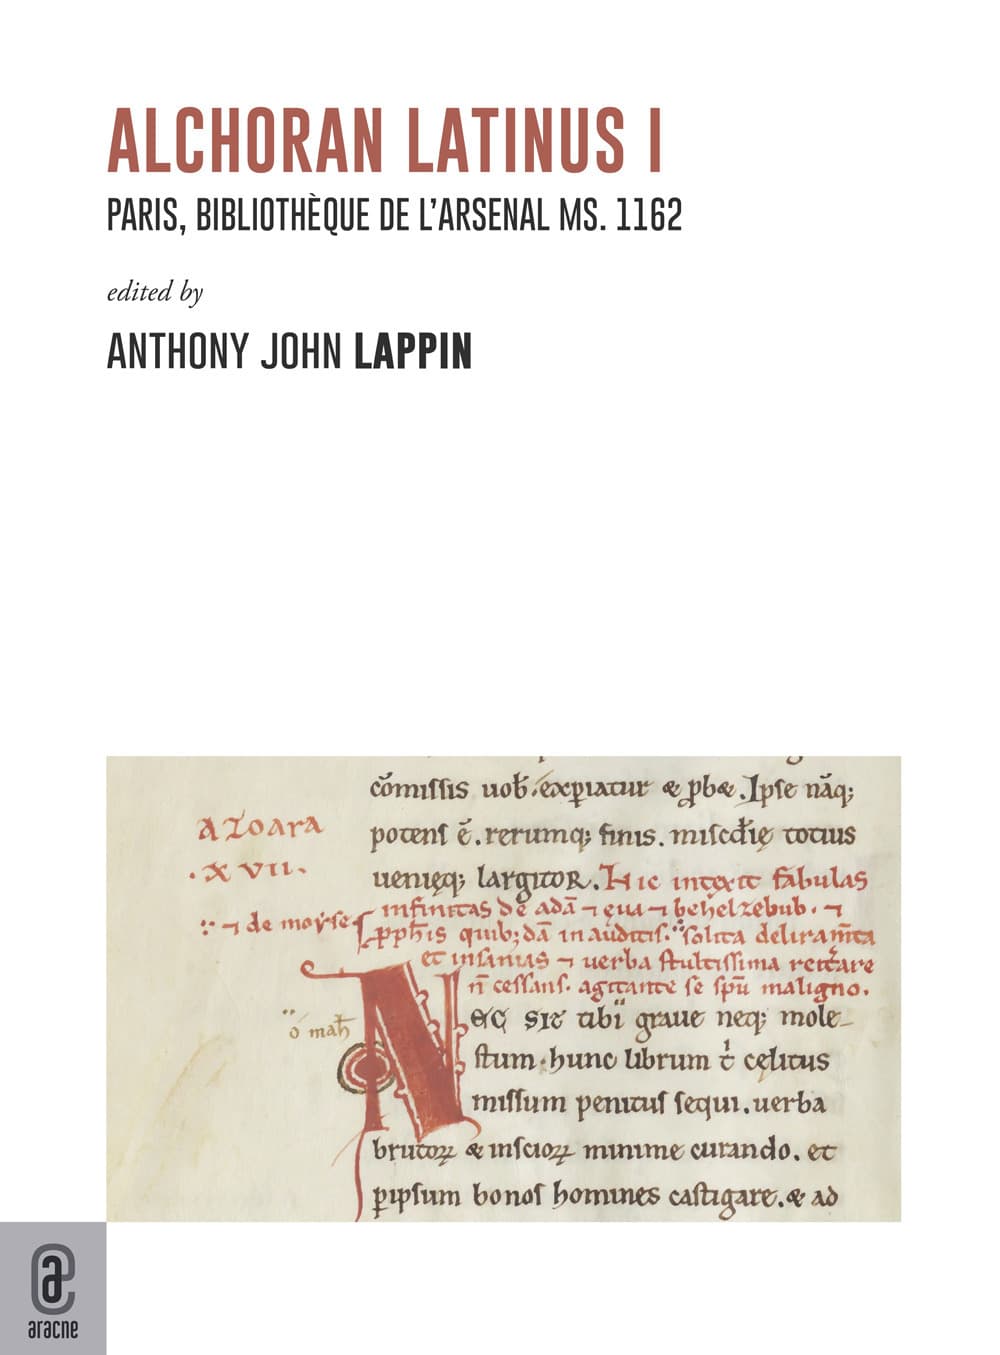 ALCHORAN LATINUS I
PARIS, BIBLIOTHÈQUE DE L'ARSENAL MS. 1162
edited by
ANTHONY JOHN LAPPIN
cōmissis uob̄. expiatur & ꝓbæ. Ipse nāq;
potens ē. rerumq; finis. miscd̄ie totius
AZoara
uenięq; largitoR. Hic intexit fabulas
.xvii.
infinitas de adā ⁊ eua ⁊ behelzebub. ⁊
⁊ de moẏse
ꝓph̄is quib; dā inauditis. solita deliram̄ta
et insanias ⁊ uerba stultissima recitare
n̄ cessans. agitante se spū maligno.
NEC sit tibi graue neq; mole-
o mah̄
stum. hunc librum t̄ cęlitus
missum penitus sequi. uerba
brutoꝝ & inscioꝝ minime curando. et
ꝑipsum bonos homines castigare. & ad
aracne